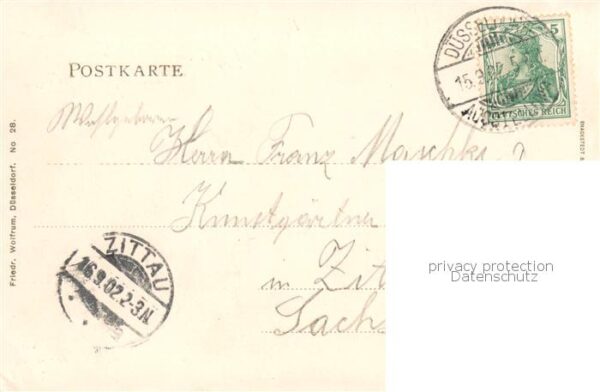 POSTKARTE
DÜSSELDORF
15.9.
5
DEUTSCHES REICH
Wohlgeboren
Herrn Franz Maschke
Kunstgärtner
in Zit
Sachs
ZITTAU
16.9.02.2-3N.
Friedr. Wolfrum, Düsseldorf. No 28.
privacy protection
Datenschutz